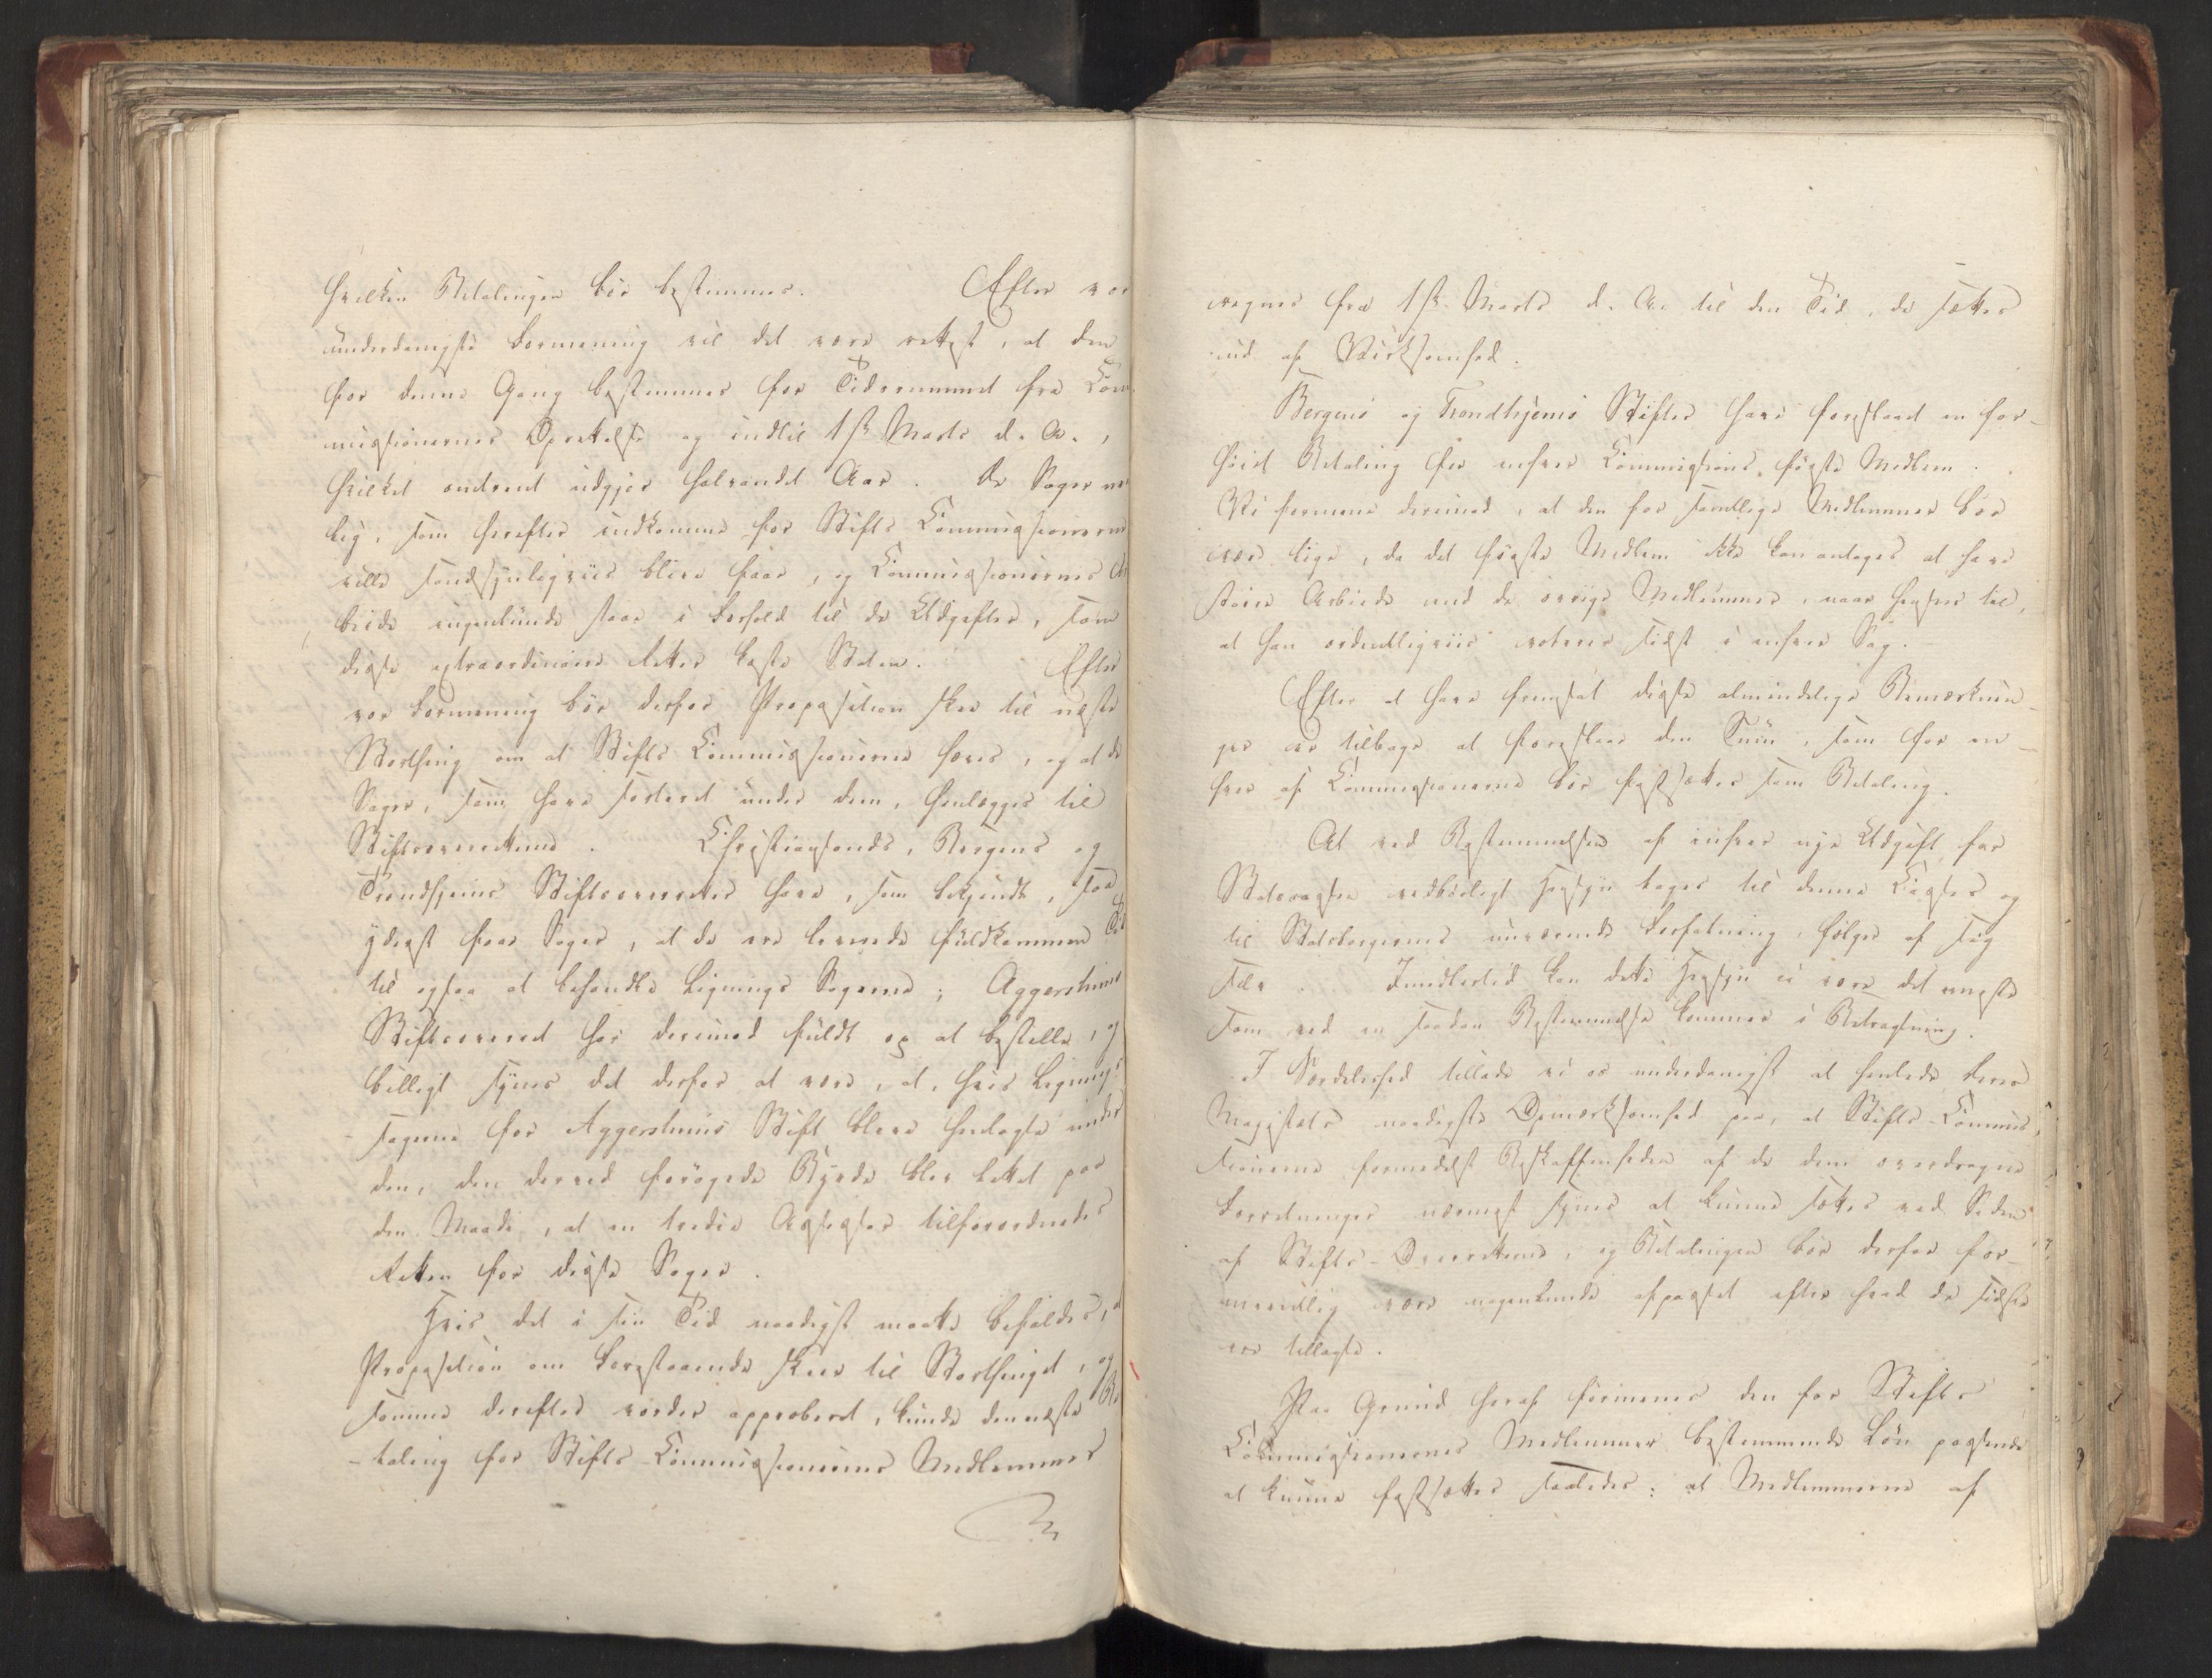 hvilken Betalingen bör bestemmes. Efter vor
underdanigste Formening vil det være rettest, at den
for denne Gang bestemmes for Tidsrummet fra Com-
missionernes Oprettelse og indtil 1ste Marts d. A.,
hvilket omtrent udgjør halvandet Aar. De Sager nem-
lig, som herefter indkomme for Stifts Commissionerne
ville sandsynligviis blive faae, og Commissionernes Ar-
beide ingenlunde staae i Forhold til de Udgifter, som
disse extraordinaire Retter koste Staten. Efter
vor Formening bör derfor Proposition skee til næste
Storthing om at Stifts Commissionerne hæves, og at de
Sager, som have sorteret under dem, henlægges til
Stiftsoverretterne. Christiansands, Bergens og
Trondhjems Stiftsoverretter have, som bekjendt, saa
yderst faae Sager, at de ere levnede fuldkommen Tid
til ogsaa at behandle Lignings Sagerne; Aggershuus
Stiftsoverret har derimod fuldt op at bestille, og
billigt synes det derfor at være, at, hvis Lignings-
sagerne for Aggershuus Stift bleve henlagte under
den, den derved forögede Byrde blev lettet paa
den Maade, at en tredie Assessor tilforordnedes
Retten for disse Sager.
Hvis det i sin Tid naadigst maatte befaldes, at
Proposition om Forestaaende skeer til Storthinget, og
samme derefter vorder approberet, kunde den næste Be-
-taling for Stifts-Commissionernes Medlemmer
regnes fra 1ste Marts d. A. til den Tid, de sættes
ud af Virksomhed.
Bergens og Trondhjems Stifter have foreslaaet en for-
höiet Betaling for enhver Commissions förste Medlem.
Vi formene derimod, at den for samtlige Medlemmer bör
være lige, da det förste Medlem ikke kan antages at have
större Arbeide end de övrige Medlemmer, naar hensees til,
at han ordentligviis voterer sidst i enhver Sag.
Efter at have fremsat disse almindelige Bemærknin-
ger er tilbage at foreslaae den Sum, som for en-
hver af Commissionerne bör fastsættes som Betaling.
At ved Bestemmelsen af enhver nye Udgift for
Statscassen vedbörligt Hensyn tages til denne Casses og
til Statsborgernes nuværende Forfatning, fölger af sig
selv. Imidlertid kan dette Hensyn ei være det eneste
som ved en saadan Bestemmelse kommer i Betragtning.
I Særdeleshed tillade vi os underdanigst at henlede Deres
Majestæts naadigste Opmærksomhed paa, at Stifts-Commis-
sionerne formedelst Beskaffenheden af de dem overdragne
Forretninger nærmest synes at kunne sættes ved Siden
af Stifts-Overretterne, og Betalingen bör derfor for-
nemmelig være nogenlunde afpasset efter hvad de sidste
ere tillagte.
Paa Grund heraf formenes den for Stifts
Commissionernes Medlemmer bestemmende Lön passende
at kunne fastsættes saaledes: at Medlemmerne af